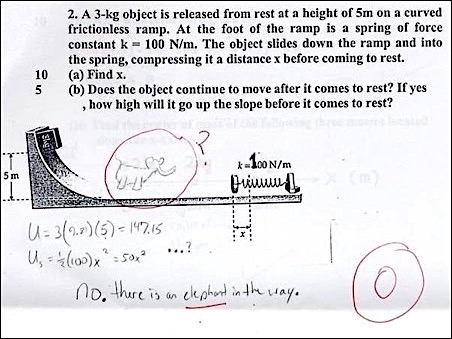 2. A 3-kg object is released from rest at a height of 5m on a curved
frictionless ramp. At the foot of the ramp is a spring of force
constant k = 100 N/m. The object slides down the ramp and into
the spring, compressing it a distance x before coming to rest.
10 (a) Find x.
5 (b) Does the object continue to move after it comes to rest? If yes
, how high will it go up the slope before it comes to rest?
?
3-kg
k=100 N/m
5 m
x
U = 3(9.81)(5) = 147.15
Us = ½(100)x² = 50x² ...?
NO. there is an elephant in the way.
0